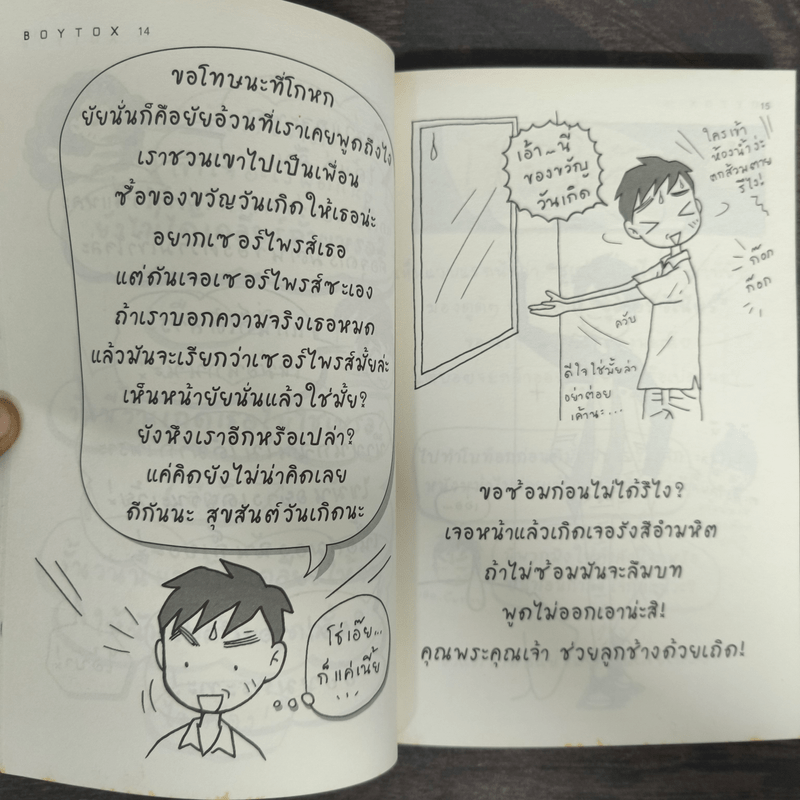 BOYTOX 14
ขอโทษนะที่โกหก
ยัยนั่นก็คือยัยอ้วนที่เราเคยพูดถึงไง
เราชวนเขาไปเป็นเพื่อน
ซื้อของขวัญวันเกิดให้เธอน่ะ
อยากเซอร์ไพรส์เธอ
แต่ดันเจอเซอร์ไพรส์ซะเอง
ถ้าเราบอกความจริงเธอหมด
แล้วมันจะเรียกว่าเซอร์ไพรส์มั้ยล่ะ
เห็นหน้ายัยนั่นแล้วใช่มั้ย?
ยังหึงเราอีกหรือเปล่า?
แค่คิดยังไม่น่าคิดเลย
ดีกันนะ สุขสันต์วันเกิดนะ
โธ่เอ๊ย...
ก็แค่เนี้ย
...
15
เอ้า...นี่
ของขวัญ
วันเกิด
ใครเข้า
ห้องน้ำว่ะ
ตกส้วมตาย
รึไง!
ก๊อก
ก๊อก
ควับ
ดีใจใช่มั้ยล่า
อย่าต่อย
เค้านะ...
ขอซ้อมก่อนไม่ได้รึไง?
เจอหน้าแล้วเกิดเจอรังสีอำมหิต
ถ้าไม่ซ้อมมันจะลืมบท
พูดไม่ออกเอาน่ะสิ!
คุณพระคุณเจ้า ช่วยลูกช้างด้วยเถิด!